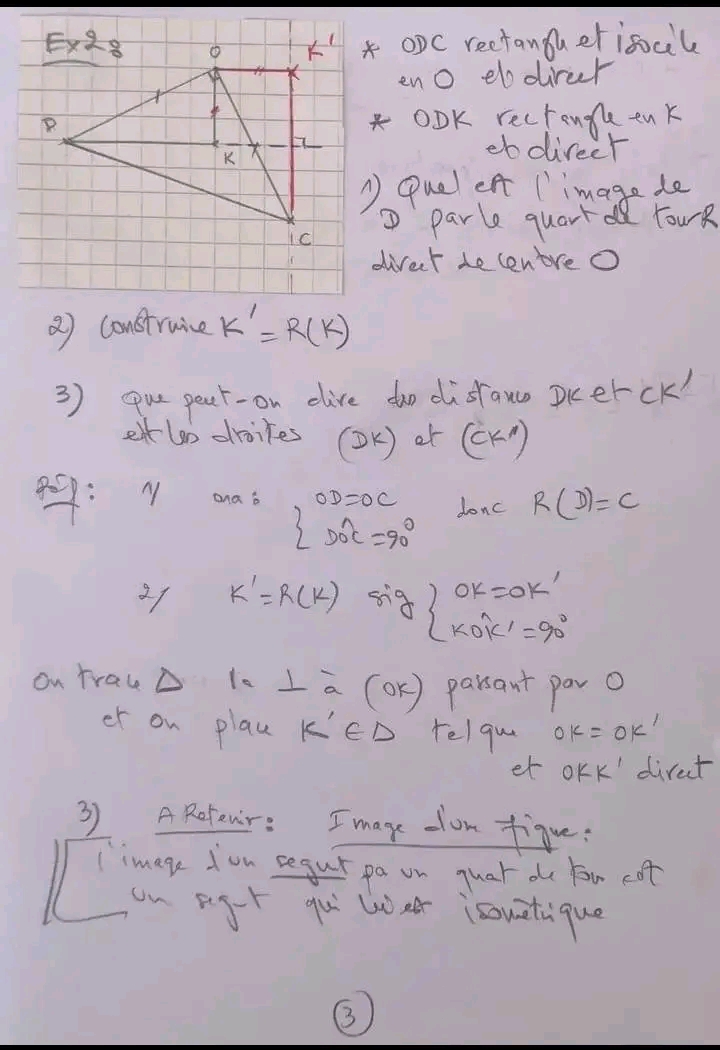 Ex 2:
O
K'
D
K
C
* ODC rectangle et isocèle
en O et direct
* ODK rectangle en K
et direct
1) Quel est l'image de
D par le quart de tour R
direct de centre O
2) Construire K' = R(K)
3) Que peut-on dire des distances DK et CK'
et les droites (DK) et (CK')
Rép: 1/ on a: { OD=OC
DÔC = 90°
donc R(D)= C
2/ K' = R(K) sig { OK = OK'
KÔK' = 90°
On trace Δ la ⊥ à (OK) passant par O
et on place K' ∈ Δ tel que OK = OK'
et OKK' direct
3) A Retenir: Image d'un figure:
l'image d'un segt pa un quat de tou est
un segt qui lui est isométrique
3